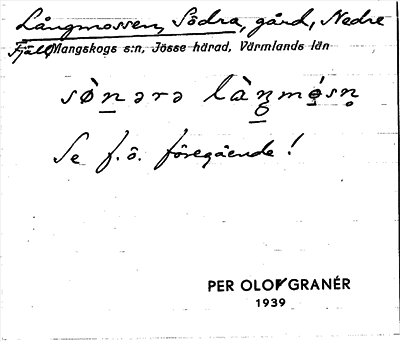 Långmossen, Södra, gård, Nedre
Fjäll, Mangskogs s:n, Jösse härad, Värmlands län
sø̀nərə là̀ŋmó̱sn̥
Se f. ö. föregående!
PER OLOF GRANÉR
1939